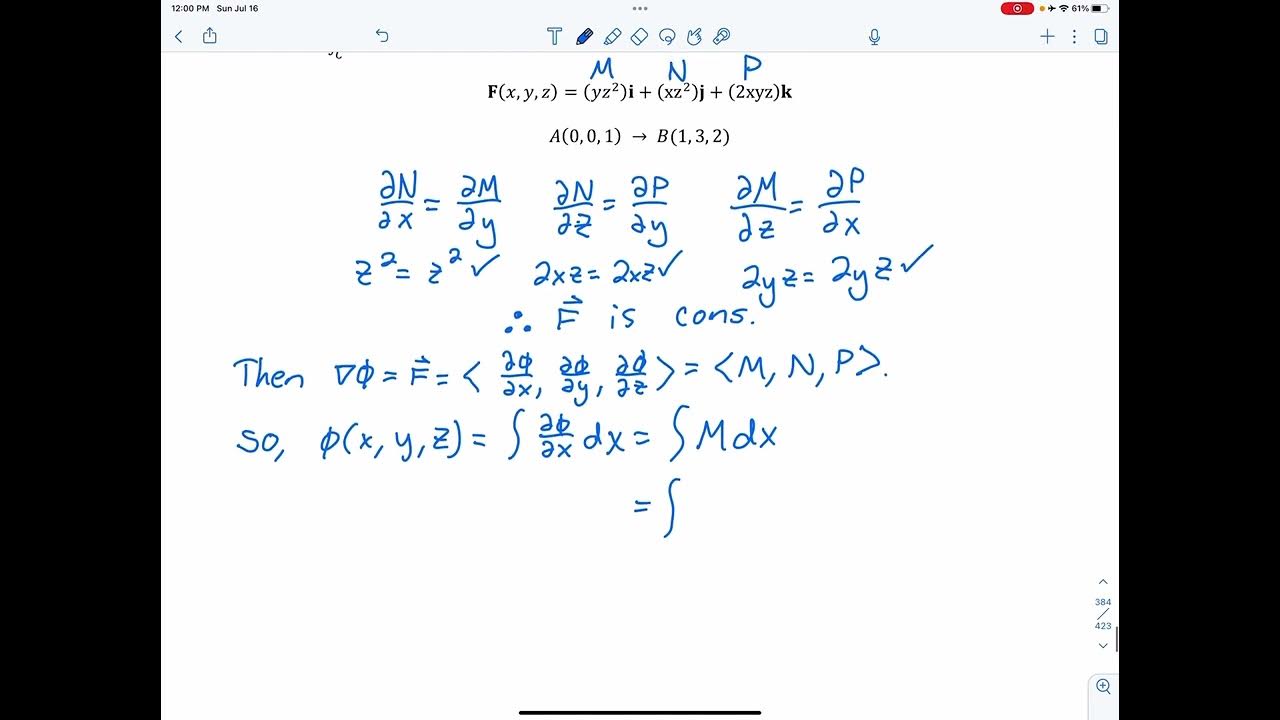 12:00 PM Sun Jul 16
61%
M N P
F(x, y, z) = (yz²)i + (xz²)j + (2xyz)k
A(0,0,1) → B(1,3,2)
∂N/∂x = ∂M/∂y ∂N/∂z = ∂P/∂y ∂M/∂z = ∂P/∂x
z² = z² ✓ 2xz = 2xz ✓ 2yz = 2yz ✓
∴ F⃗ is cons.
Then ∇ϕ = F⃗ = < ∂ϕ/∂x, ∂ϕ/∂y, ∂ϕ/∂z > = <M, N, P>.
So, ϕ(x, y, z) = ∫ ∂ϕ/∂x dx = ∫ M dx
= ∫
384
/
423